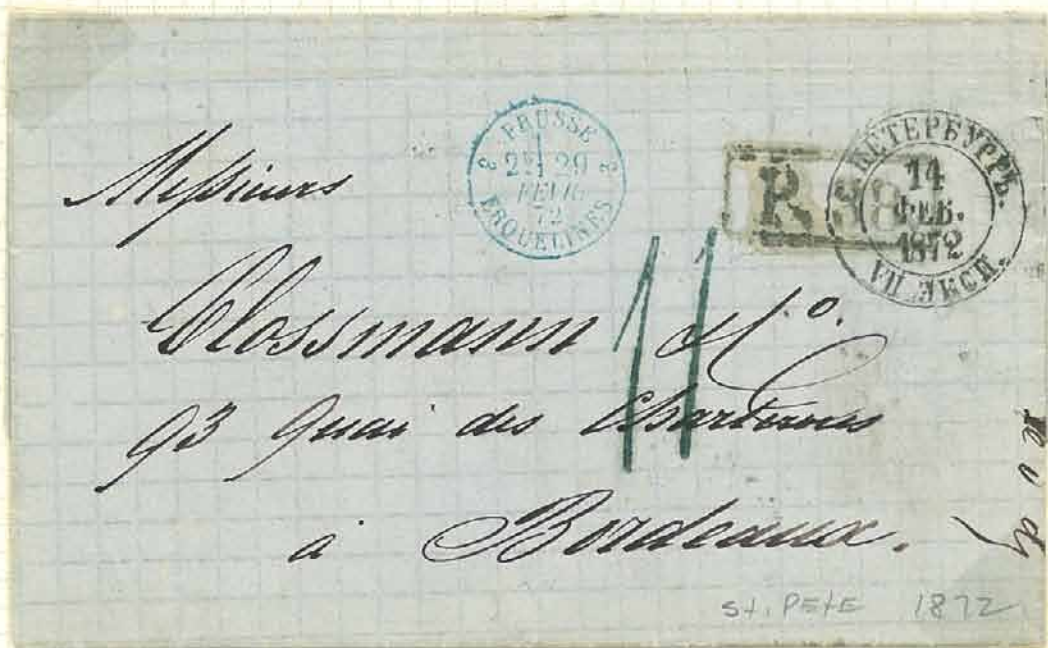 PRUSSE
2 29
FEVR
72
ERQUELINES
R. 38
ПЕТЕРБУРГЪ.
14
ФЕВ.
1872
VII ЭКСП.
Messieurs
Clossmann & Cº.
11
93 Quai des Chartrons
à Bordeaux.
St. PETE 1872